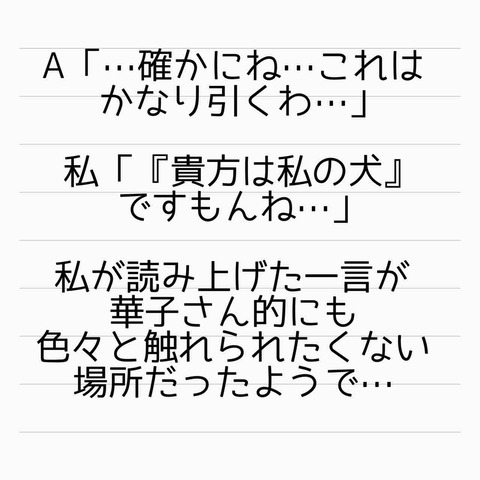 A「…確かにね…これは
かなり引くわ…」
私「『貴方は私の犬』
ですもんね…」
私が読み上げた一言が
華子さん的にも
色々と触れられたくない
場所だったようで…